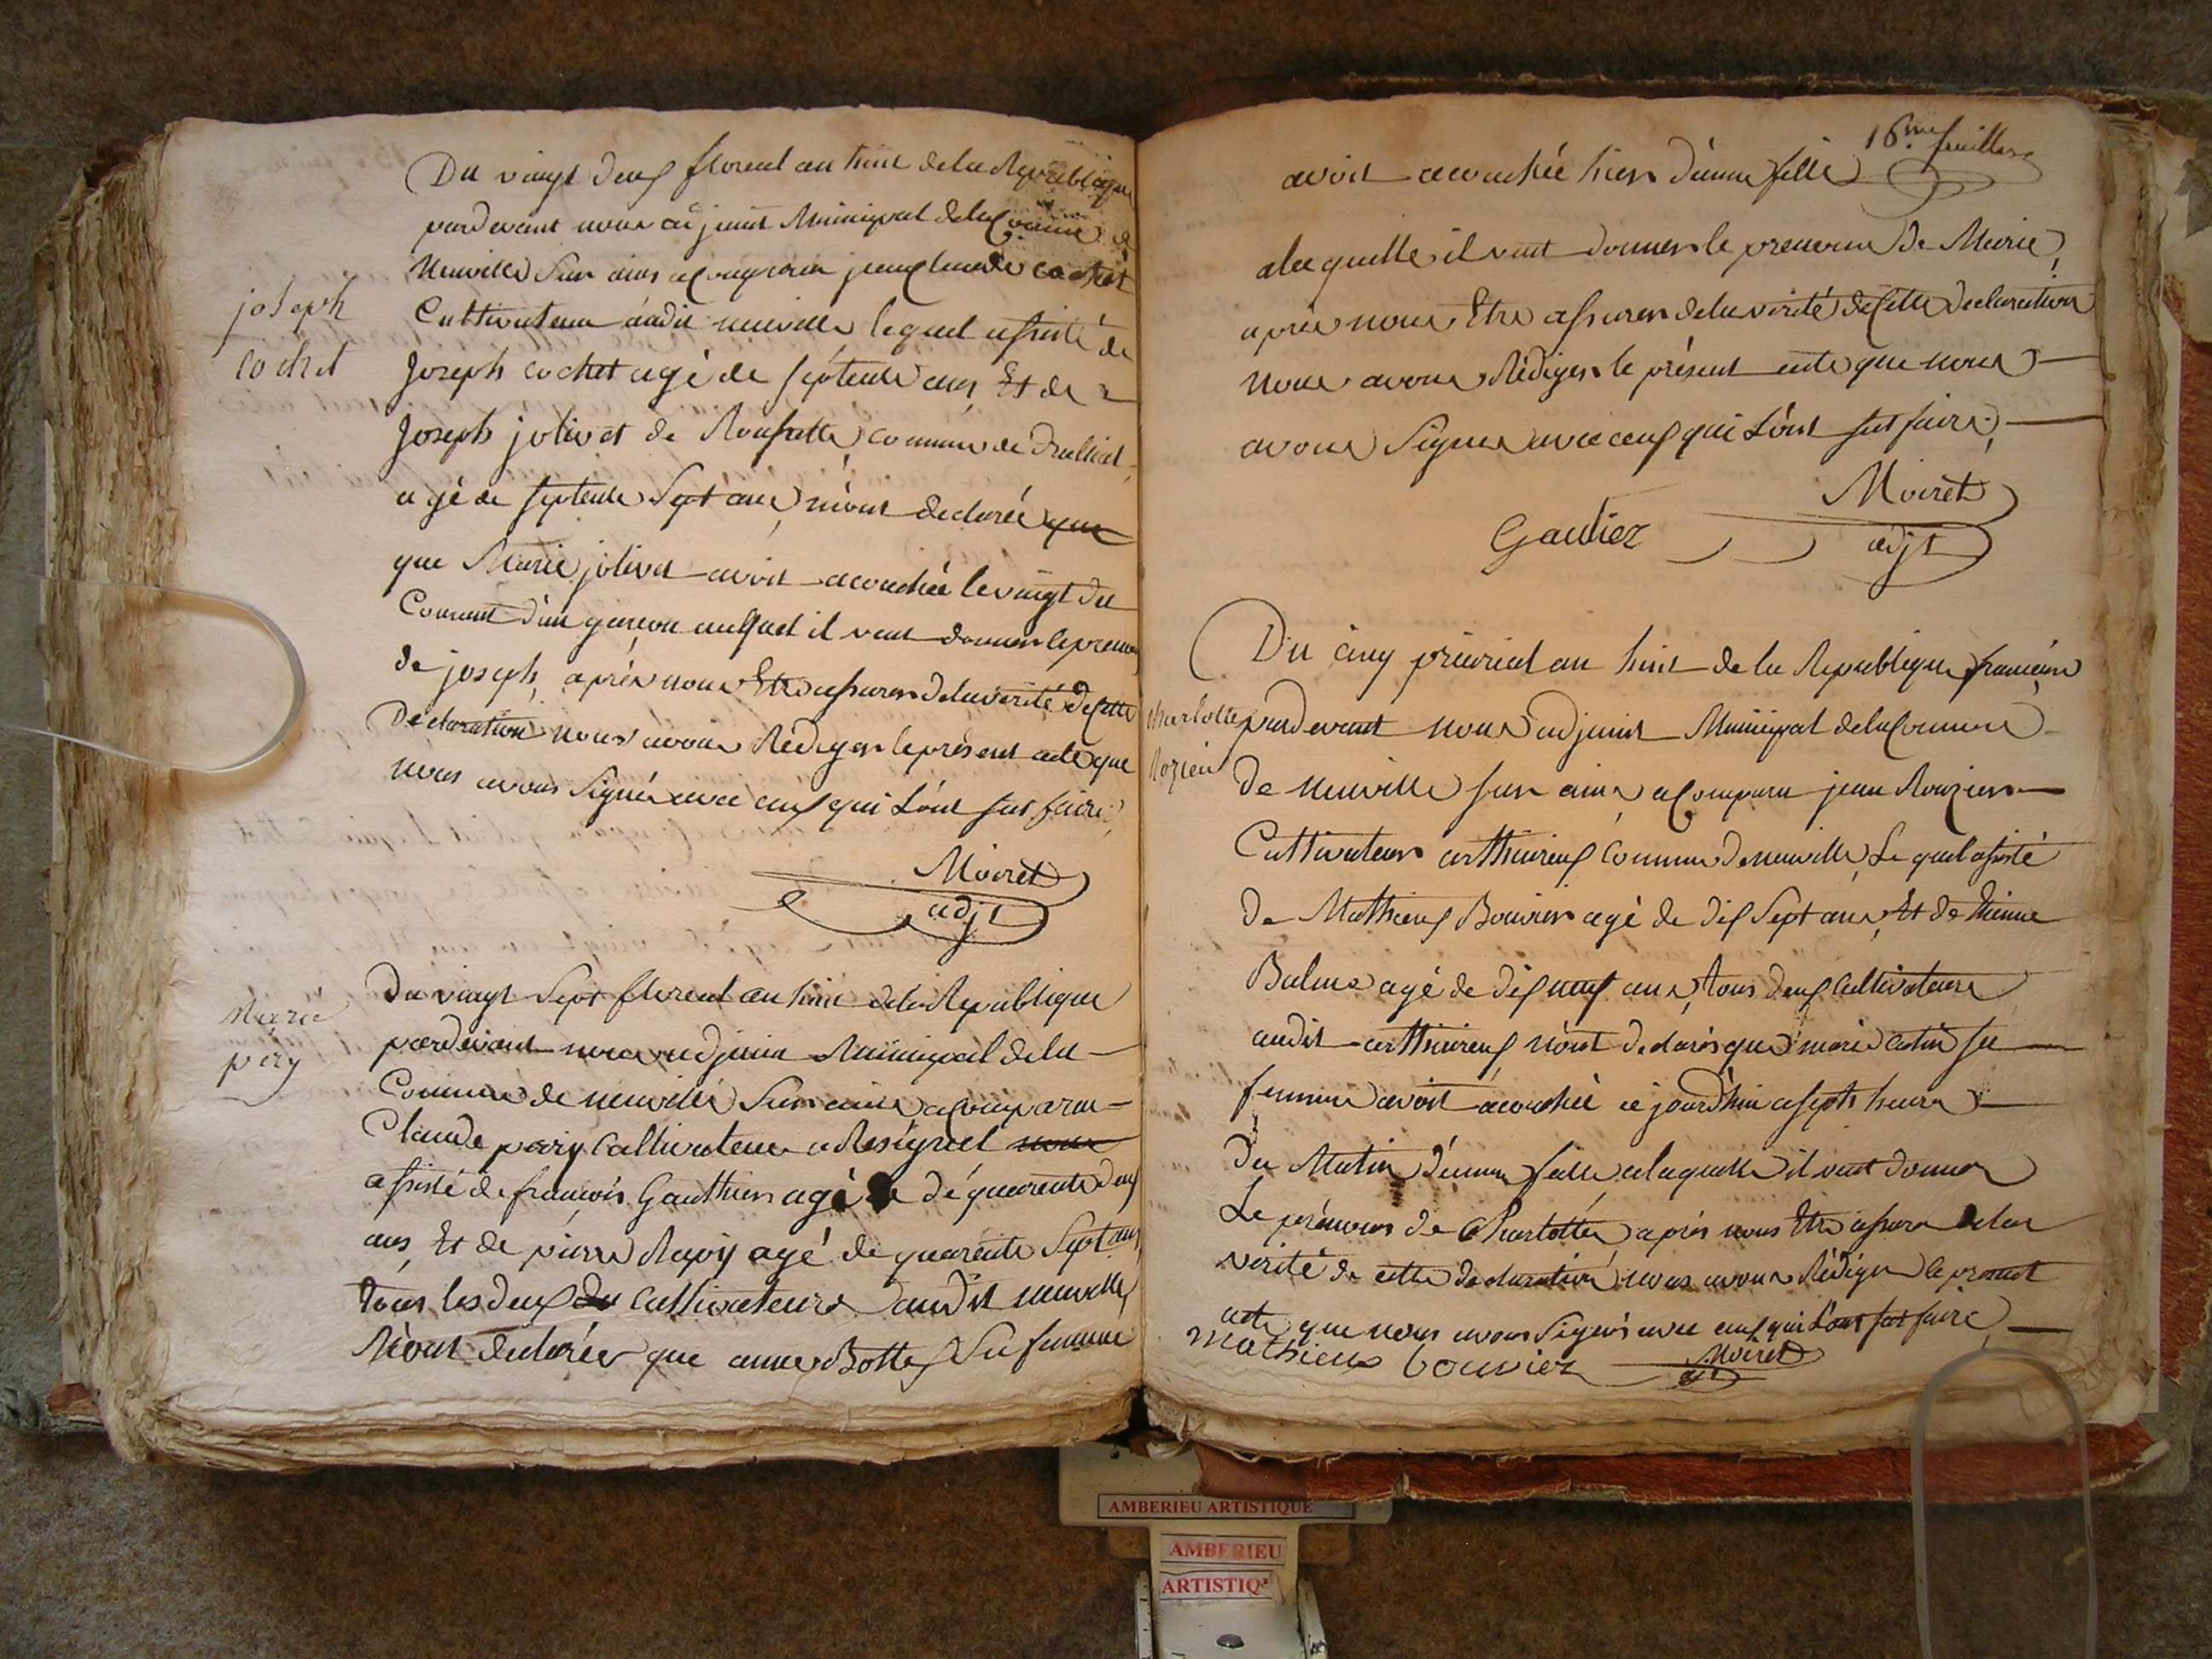 Du vingt deux floreal an huit de la Republique
pardevant nous adjoint Municipal de la Comune de
Neuville Sur ains a Comparu jean claude cochet
joseph
cochet
Cultivateur audit neuville lequel assisté de
Joseph cochet agé de septente ans Et de
Joseph jolivet de Rousette commune de Druliat
agé de septente Sept ans, n'ont declarée que
que Marie jolivet avoit acouchée le vingt du
Courant d'un garcon auquel il veut donner le prenom
de joseph, après nous Etre assurer de la verité de Cette
Declaration nous avons Rediger le présent acte que
nous avons Signés avec ceux qui L'ont sut faire,
Moiret
adjt
Du vingt Sept floreal an huit de la Republique
Marie
pery
pardevant nous adjoin Municipal de la
Commune de neuville Sur ains a Comparu
Claude pery Cultivateur a Resignel nous
assisté de françois Gauthier agé de dé quarente deux
ans, Et de pierre Repoy agé de quarente Sept ans,
tous les deux du Cultivateurs audit neuville
N'ont declarée que anne Botte Sa femme
16me. feuillet
avoit acouchée hier d'enne fille
alaquelle il veut donner le prenom de Marie,
après nous Etre assurer de la verité de Cette declaration
nous avons Rédiger le présent acte que nous
avons Signer avec ceux qui L'ont sut faire,
Moiret
Gautiez
adjt
Du cinq prairial an huit de la Republique francaise
charlotte
Rozier
pardevant nous adjoint Municipal de la Commune
de Neuville sur ains, a Comparu jean Rouzier
Cultivateur artthieureux Commune de neuville, Le quel assisté
de Mathieux Bouvier agé de dix Sept ans, Et de Etienne
Balme agé de dix neuf ans, tous deux Cultivateurs
audit artthieureux n'ont declarés que marie catin sa
femme avoit acouchée ce jourd'hui a septs heure
du Matin d'enne fille alaquelle il veut donner
Le prénom de Charlotte après nous Etre assurer de la
verité de cette declaration nous avons Rédiger le present
acte que nous avons Signés avec ceux qui L'ont sut faire
Mathieux bouviez
Moiret
adjt
AMBERIEU ARTISTIQUE
AMBERIEU
ARTISTIQ